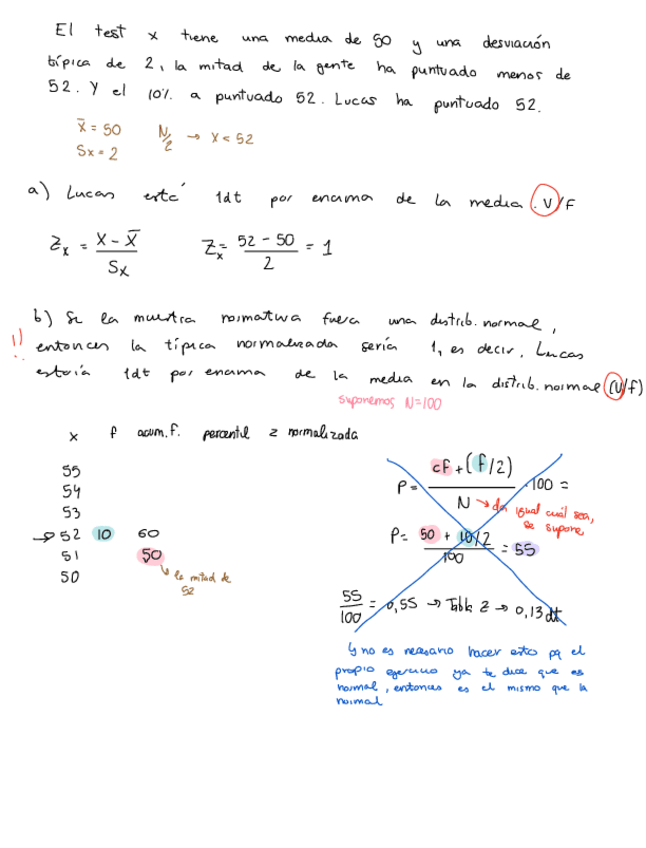 El test x tiene una media de 50 y una desviación
típica de 2, la mitad de la gente ha puntuado menos de
52. Y el 10% a puntuado 52. Lucas ha puntuado 52.
x̄ = 50 N/2 → x < 52
Sx = 2
a) Lucas está 1dt por encima de la media. V/F
Zx = (X - X̄) / Sx Zx = (52 - 50) / 2 = 1
b) Si la muestra normativa fuera una distrib. normal,
!! entonces la típica normalizada sería 1, es decir, Lucas
estaría 1dt por encima de la media en la distrib. normal (V/f)
suponemos N=100
x f acum.f. percentil z normalizada
55
54
53
→ 52 10 60
51 50
50
↳ la mitad de
52
P = (cf + (f/2)) / N · 100 =
→ da igual cuál sea,
se supone
P = (50 + 10/2) / 100 = 55
55/100 = 0,55 → Tabla Z → 0,13 dt
↳ no es necesario hacer esto pq el
propio ejercicio ya te dice que es
normal, entonces es el mismo que la
normal